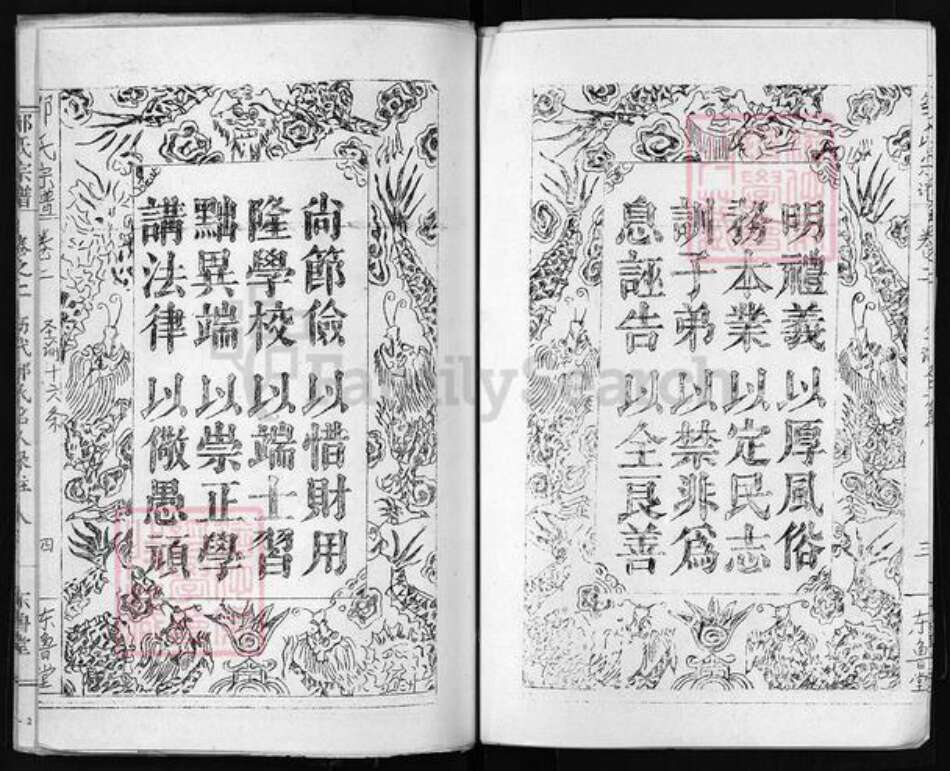 三
东鲁堂
明禮義以厚風俗
務本業以定民志
訓子弟以禁非爲
息誣告以全良善
尚節儉以惜財用
隆學校以端士習
黜異端以崇正學
講法律以儆愚頑
氏宗普 卷二
圣谕十六条
四
东鲁堂
氏宗谱 卷之二
FamilySearch